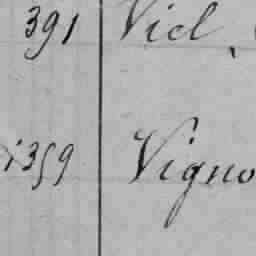 391 Viel,
1359 Vigno